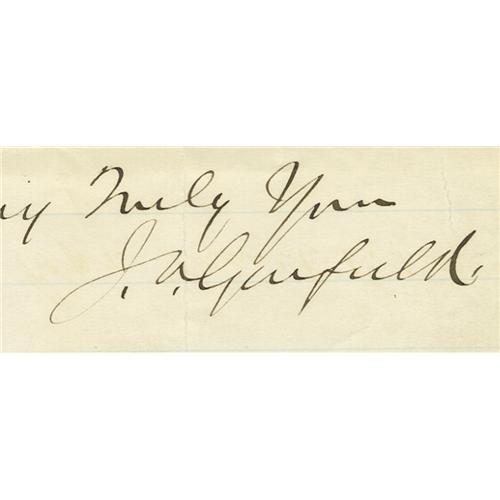 Truly Yours
J. A. Garfield.